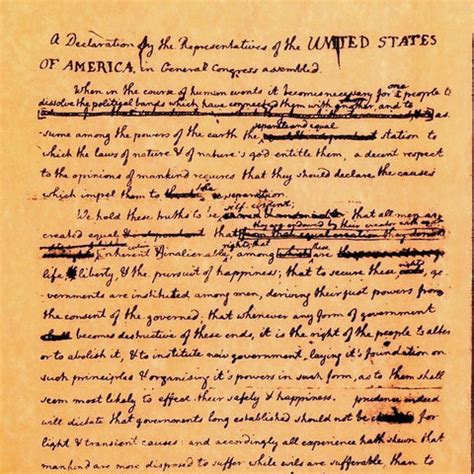 A Declaration by the Representatives of the UNITED STATES
OF AMERICA, in General Congress assembled.
When in the course of human events it becomes necessary for a people to
one
dissolve the political bands which have connected them with another, and to
as-
sume among the powers of the earth the station to
separate and equal
which the laws of nature & of nature's god entitle them, a decent respect
to the opinions of mankind requires that they should declare the causes
which impel them to the separation.
We hold these truths to be self-evident; that all men are
created equal & that
they are endowed by their creator with
rights; that these
inherent & inalienable, among which are
life, & liberty, & the pursuit of happiness; that to secure these
go-
vernments are instituted among men, deriving their just powers from
the consent of the governed; that whenever any form of government
becomes destructive of these ends, it is the right of the people to alter
or to abolish it, & to institute new government, laying it's foundation on
such principles & organising it's powers in such form, as to them shall
seem most likely to effect their safety & happiness. prudence indeed
will dictate that governments long established should not be for
light & transient causes: and accordingly all experience hath shewn that
mankind are more disposed to suffer while evils are sufferable, than to